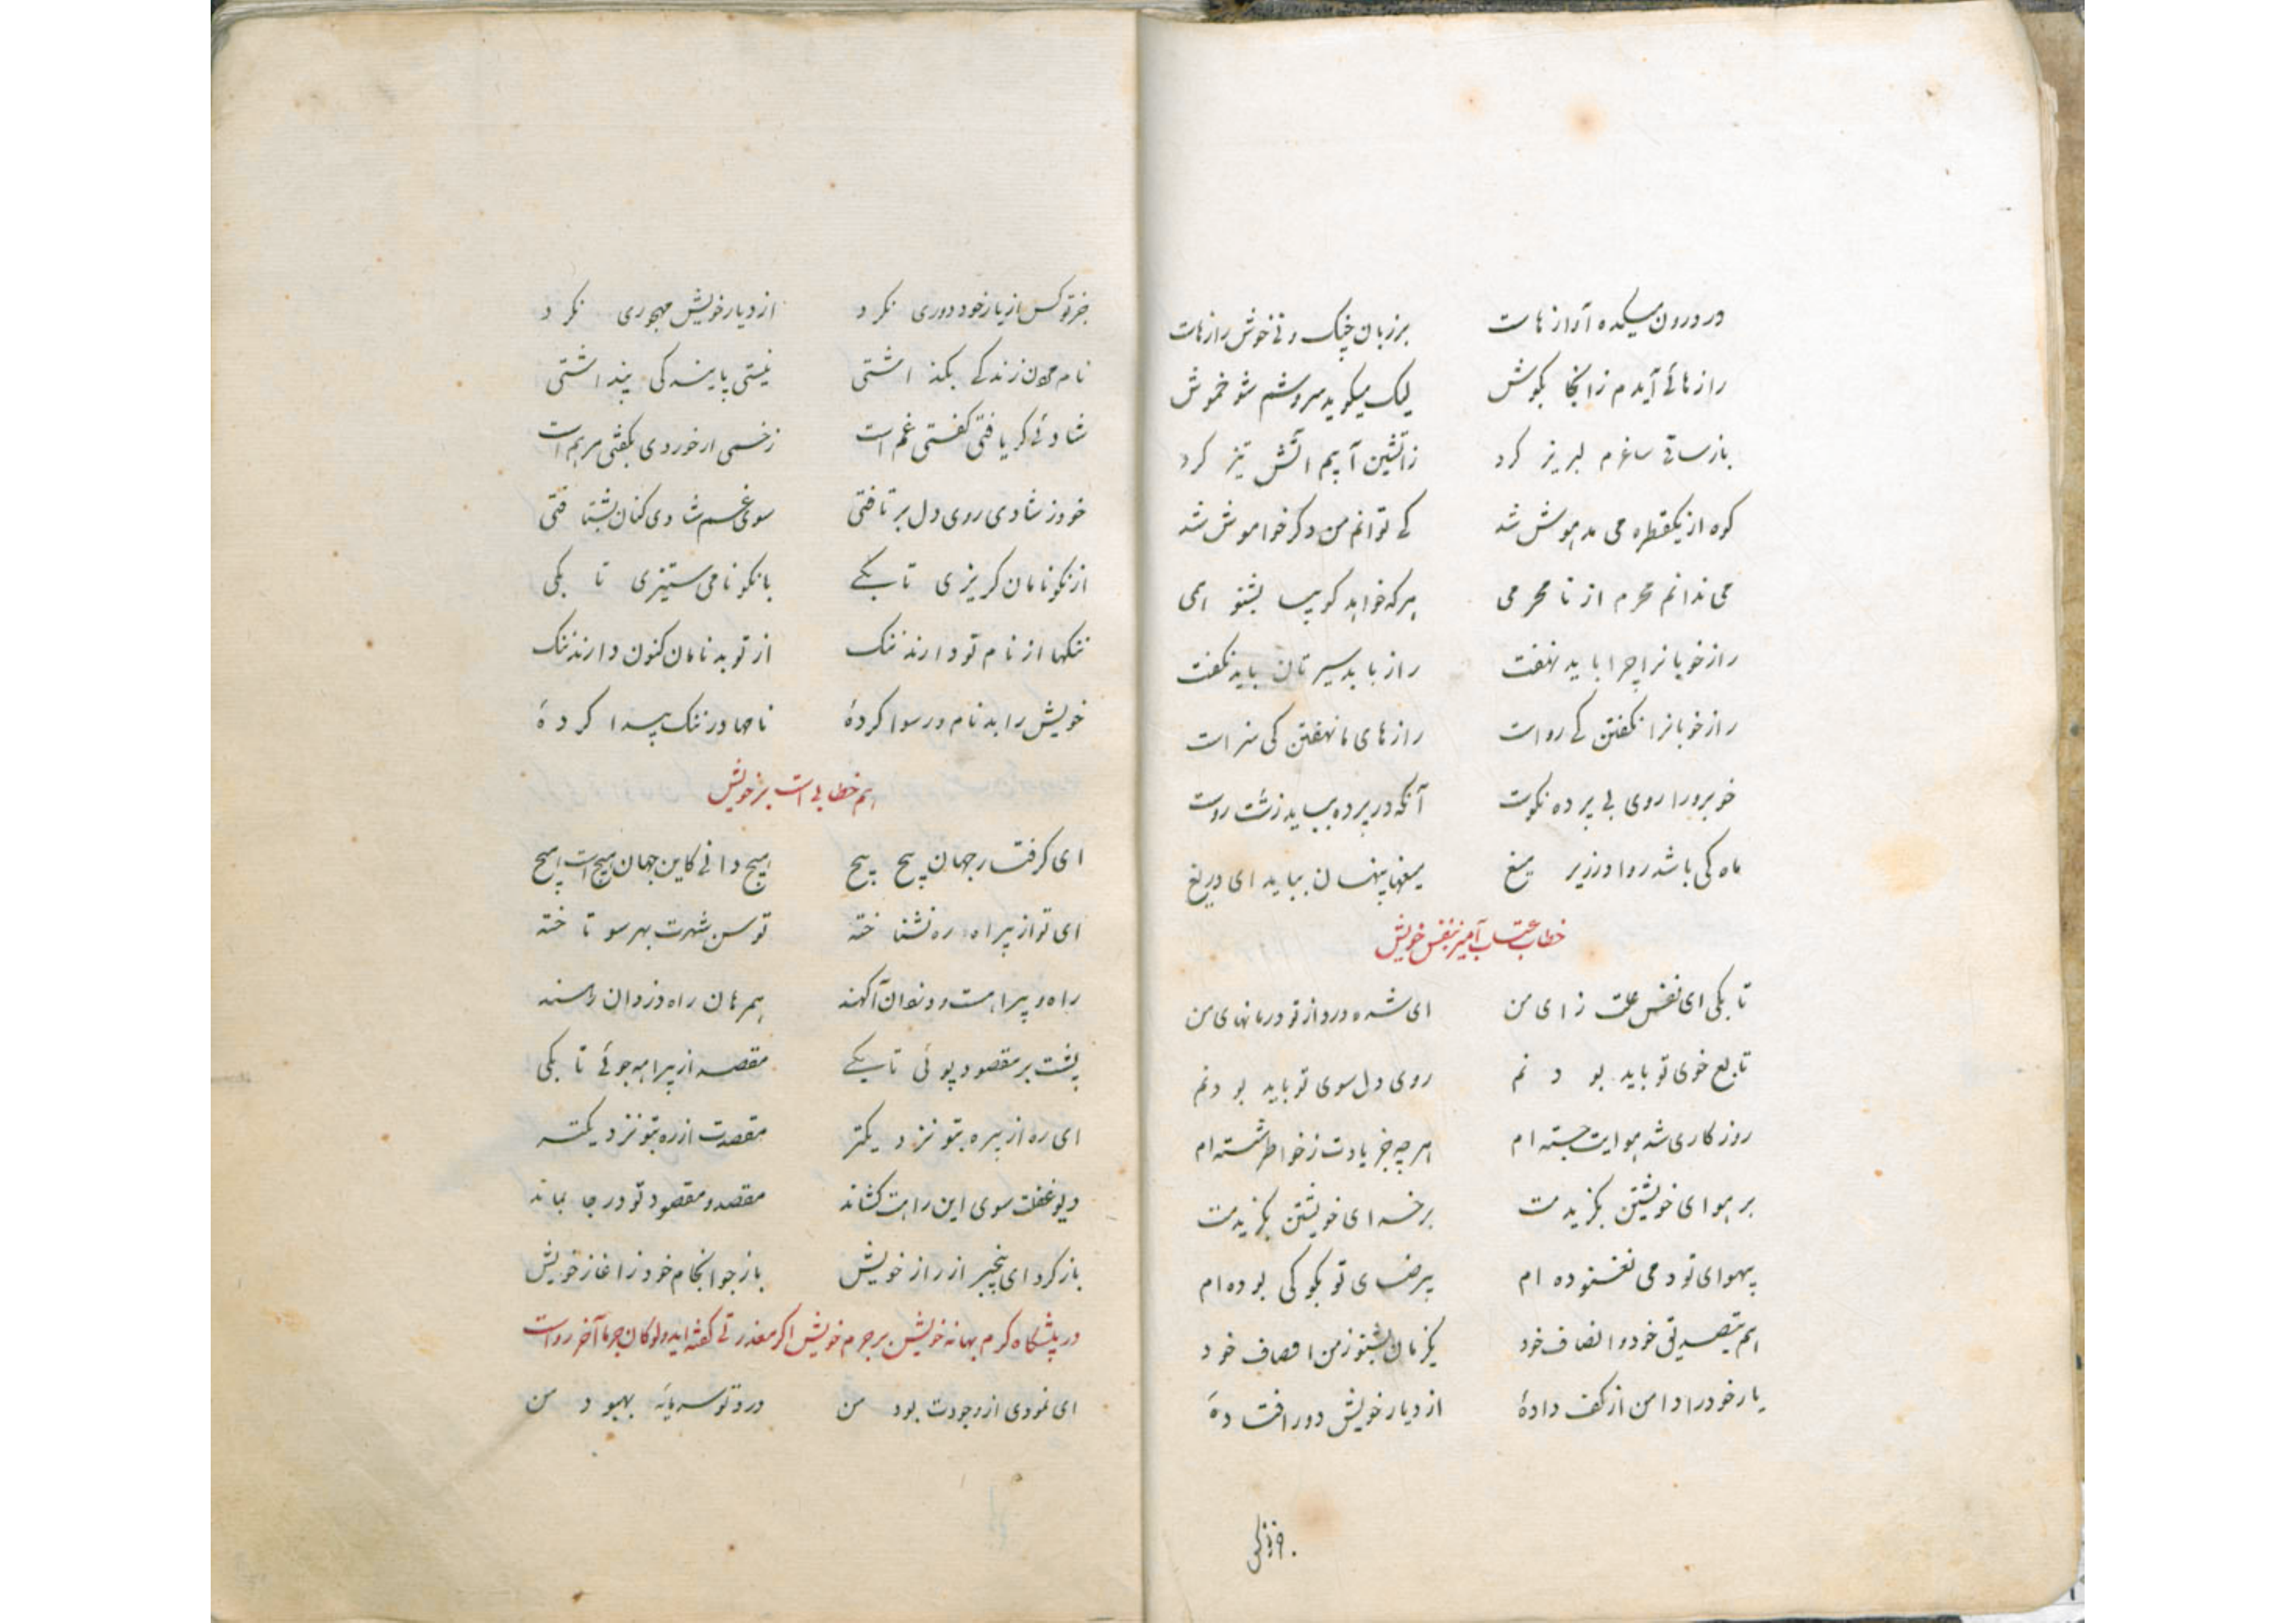 در درون میکده آوازهاست برزبان چنک و نی خوش رازهاست
رازهائی آیدم زانجا بکوش لیک میکوید سروشم شو خموش
بازساقی ساغرم لبریز کرد زآتشین آبیم اتش تیز کرد
کوه از یکقطره می مدهوش شد کی توانم من دکر خواموش شد
می ندانم محرم از نا محرمی هر که خواهد کو بیا بشنو همی
راز خوبانرا چرا باید نهفت راز با بد سیرتان باید نکفت
راز خوبانرا نکفتن کی رواست رازهای ما نهفتن کی سزاست
خوبرو را روی بی پرده نکوست آنکه در پرده بباید زشت روست
ماه کی باشد روا در زیر میغ میغها پنهان بباید ای دریغ
خطاب عتاب آمیز بنفس خویش
تا بکی ای نفس علت زای من ای شده درد از تو درمانهای من
تابع خوی تو باید بودنم روی دل سوی تو باید بودنم
روزکاری شد هوایت جسته ام هر چه جز یادت ز خواطر شسته ام
بر هوای خویشتن بکزیدمت بر خدای خویشتن بکزیدمت
بهوای تو دمی نغنوده ام برضای تو بکو کی بوده ام
هم بتصدیق خود و انصاف خود یکزمان بشنو ز من اوصاف خود
یار خود را دامن از کف دادهٔ از دیار خویش دور افتادهٔ
جز تو کس از یار خود دوری نکرد از دیار خویش مهجوری نکرد
نام مردن زندکی بکذاشتی نیستی پایندکی پنداشتی
شادئی کر یافتی کفتی غم است زخمی ار خوردی بکفتی مرهم است
خود ز شادی روی دل برتافتی سوی غم شادی کنان بشتافتی
از نکونامان کریزی تا بکی با نکونامی ستیزی تا بکی
ننکها از نام تو دارند ننک از تو بدنامان کنون دارند ننک
خویش را بدنام و رسوا کردهٔ نامها در ننک پیدا کردهٔ
هم خطابی است بر خویش
ای کرفتار جهان پیچ پیچ هیچ دانی کاین جهان هیچ است هیچ
ای تو از بیراه ره نشناخته توسن شهرت بهر سو تاخته
راه و بیراهت دزدان آکهند همرهان راه دزدان رهند
پشت بر مقصود پوئی تا بکی مقصد از بیراهه جوئی تا بکی
ای ره از بیره بتو نزدیکتر مقصدت از ره بتو نزدیکتر
دیو غفلت سوی این راهت کشاند مقصد و مقصود تو در جا بماند
باز کرد ای بیخبر از راز خویش باز جو انجام خود ز اغاز خویش
در پیشکاه کرم بهانه خویش بر جرم خویش اکر معذرتی کفته اید ولو کان جرما آخر رواست
ای نمودی از وجودت بود من درد تو سرمایهٔ بهبود من